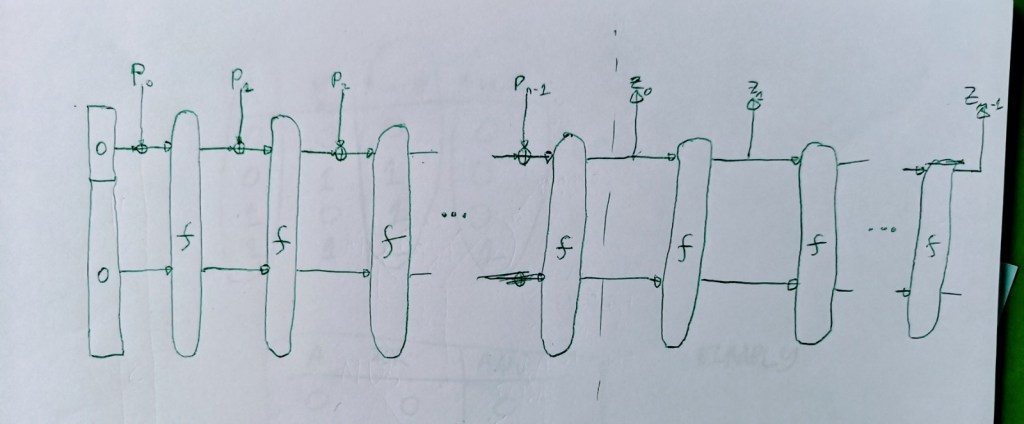 P₀ P₁ P₂ Pₙ₋₁ Z₀ Z₁ Zₘ₋₁
0
...
f f f f f f ... f
0